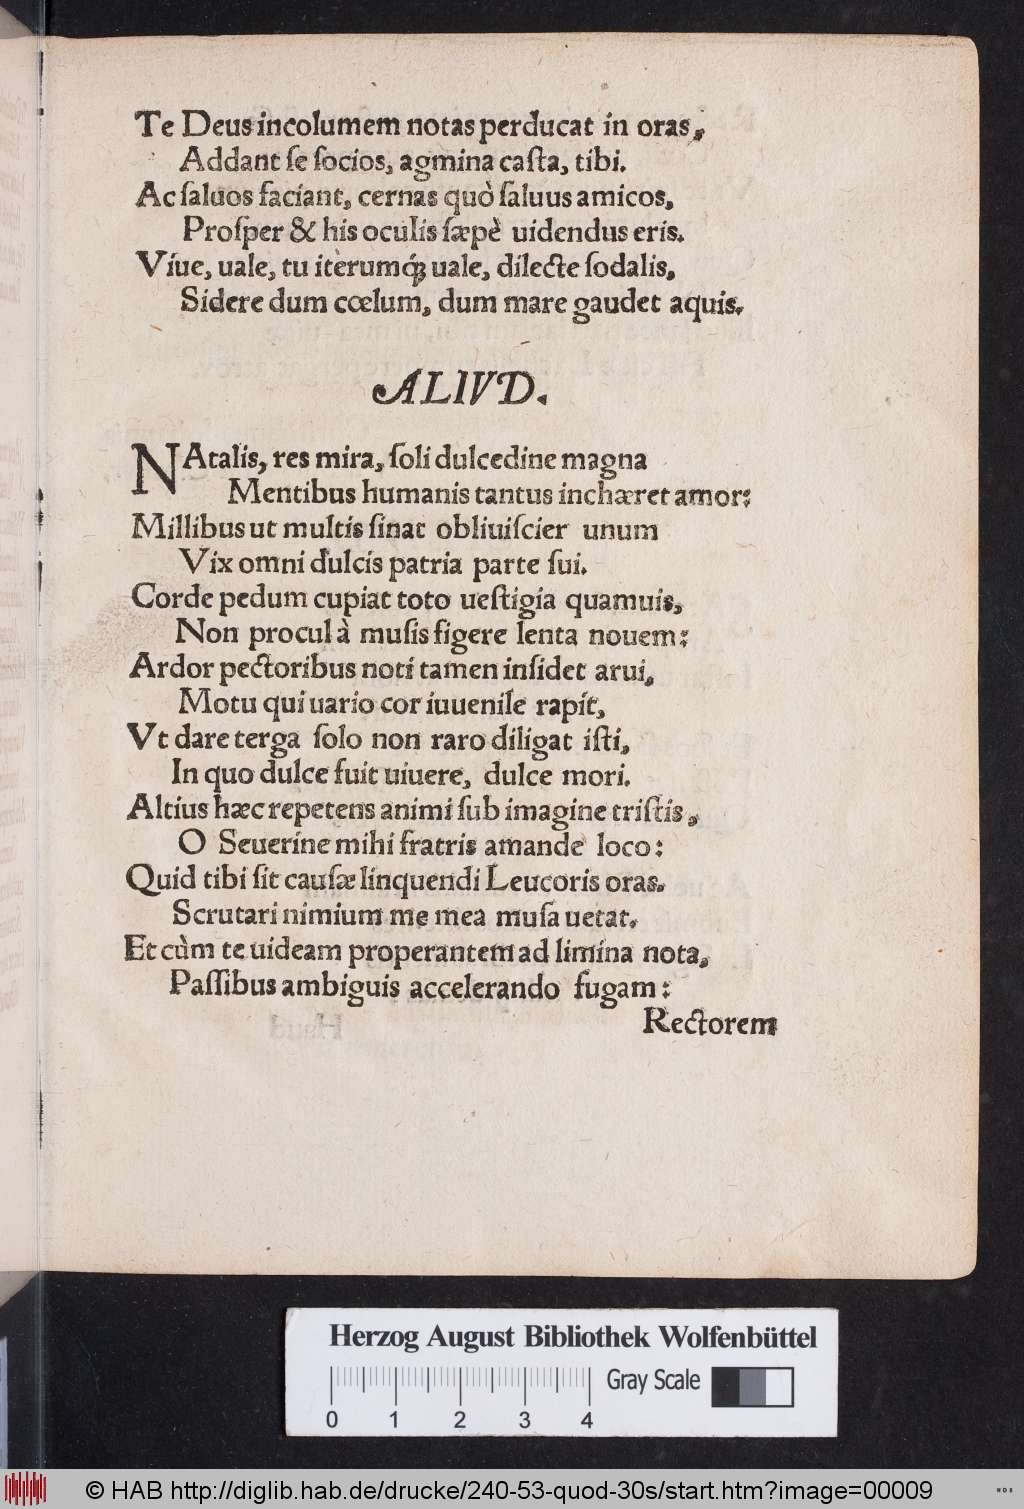 Te Deus incolumem notas perducat in oras,
Addant ſe ſocios, agmina caſta, tibi.
Ac ſaluos faciant, cernas quò ſaluus amicos,
Proſper & his oculis ſæpè uidendus eris.
Viue, uale, tu iterumq́ꝫ uale, dilecte ſodalis,
Sidere dum cœlum, dum mare gaudet aquis.
ALIVD.
NAtalis, res mira, ſoli dulcedine magna
Mentibus humanis tantus inchæret amor:
Millibus ut multis ſinat obliuiſcier unum
Vix omni dulcis patria parte ſui.
Corde pedum cupiat toto ueſtigia quamuis,
Non procul à muſis figere lenta nouem:
Ardor pectoribus noti tamen inſidet arui,
Motu qui uario cor iuuenile rapit,
Vt dare terga ſolo non raro diligat iſti,
In quo dulce fuit uiuere, dulce mori.
Altius hæc repetens animi ſub imagine triſtis,
O Seuerine mihi fratris amande loco:
Quid tibi ſit cauſæ linquendi Leucoris oras.
Scrutari nimium me mea muſa uetat.
Et cùm te uideam properantem ad limina nota,
Paſſibus ambiguis accelerando fugam:
Rectorem
Herzog August Bibliothek Wolfenbüttel
Gray Scale
0 1 2 3 4
© HAB http://diglib.hab.de/drucke/240-53-quod-30s/start.htm?image=00009